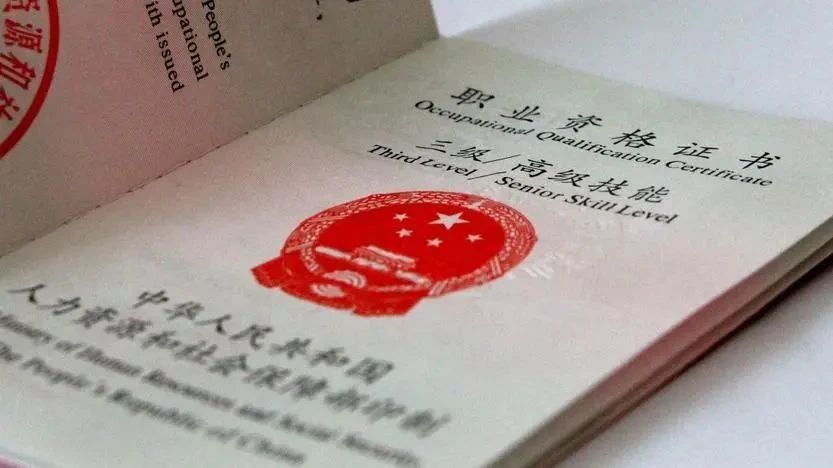 People's
ccupational
ith issued
资源和社
职业资格证书
Occupational Qualification Certificate
三级/高级技能
Third Level/Senior Skill Level
中华人民共和国
人力资源和社会保障部印制
Ministry of Human Resources and Social Security,
The People's Republic of China